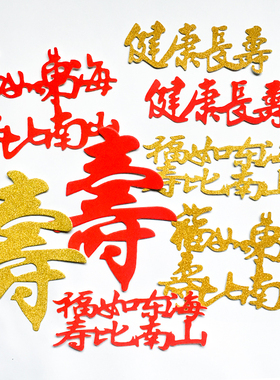 如東海
比南山
健康長壽
健康長壽
福如东海
寿比南山
壽
壽
福如東
比南山
福如东海
寿比南山